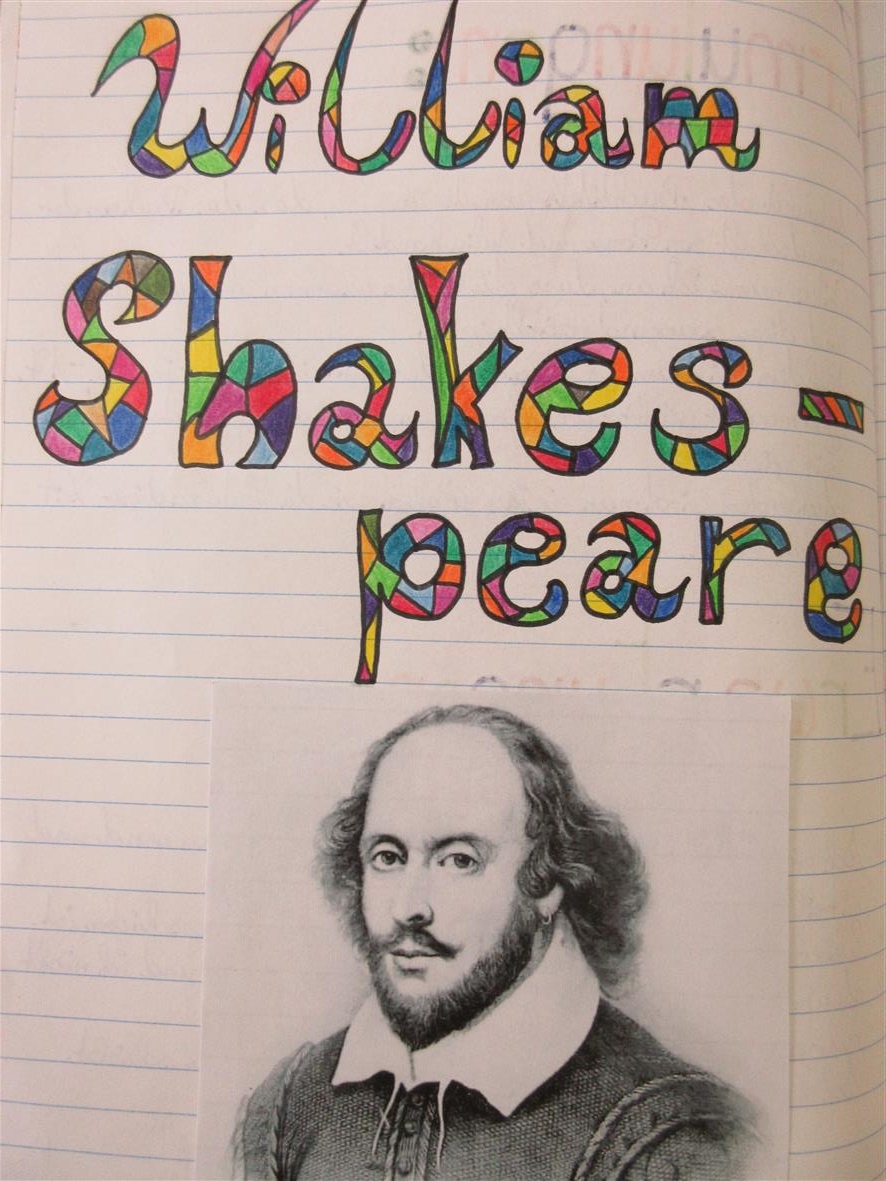 William
Shakes-
peare